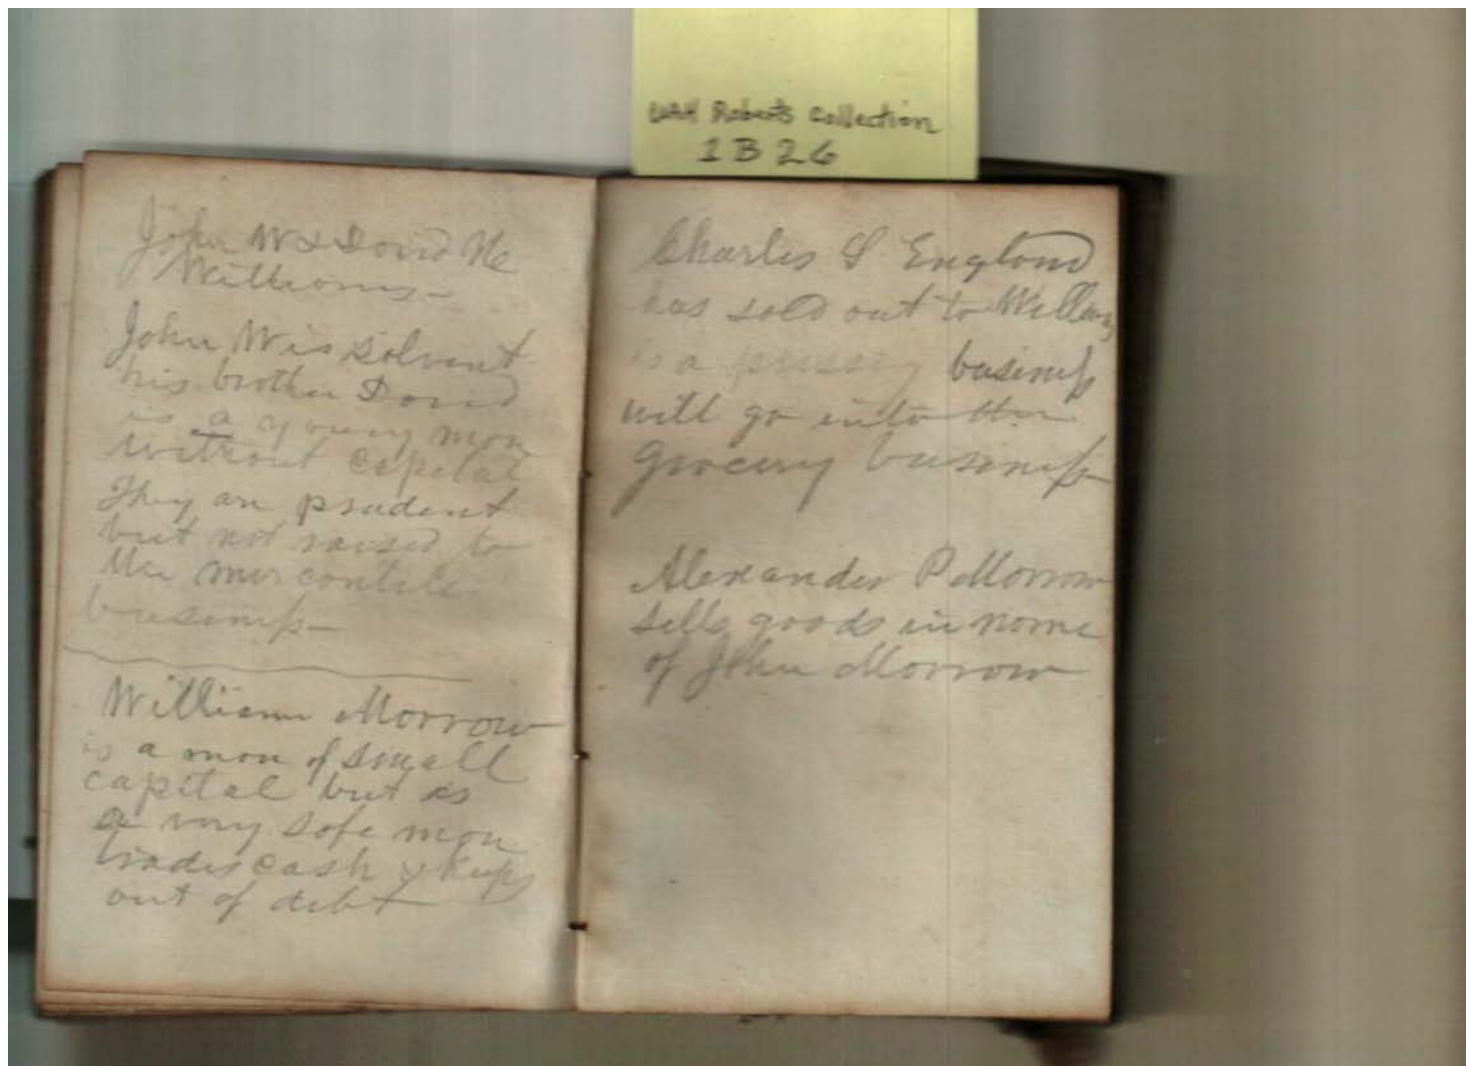 UAH Roberts Collection
1B26
John W & David Mc
Williams—
John W is solvent
his brother David
is a young man
without capital
They are prudent
but not raised to
the mercantile
business—
William Morrow
is a man of small
capital but is
a very safe man
trades cash & keeps
out of debt
Charles S England
has sold out to
is a business
will go into the
Grocery business
Alexander P Morrow
sells goods in name
of John Morrow